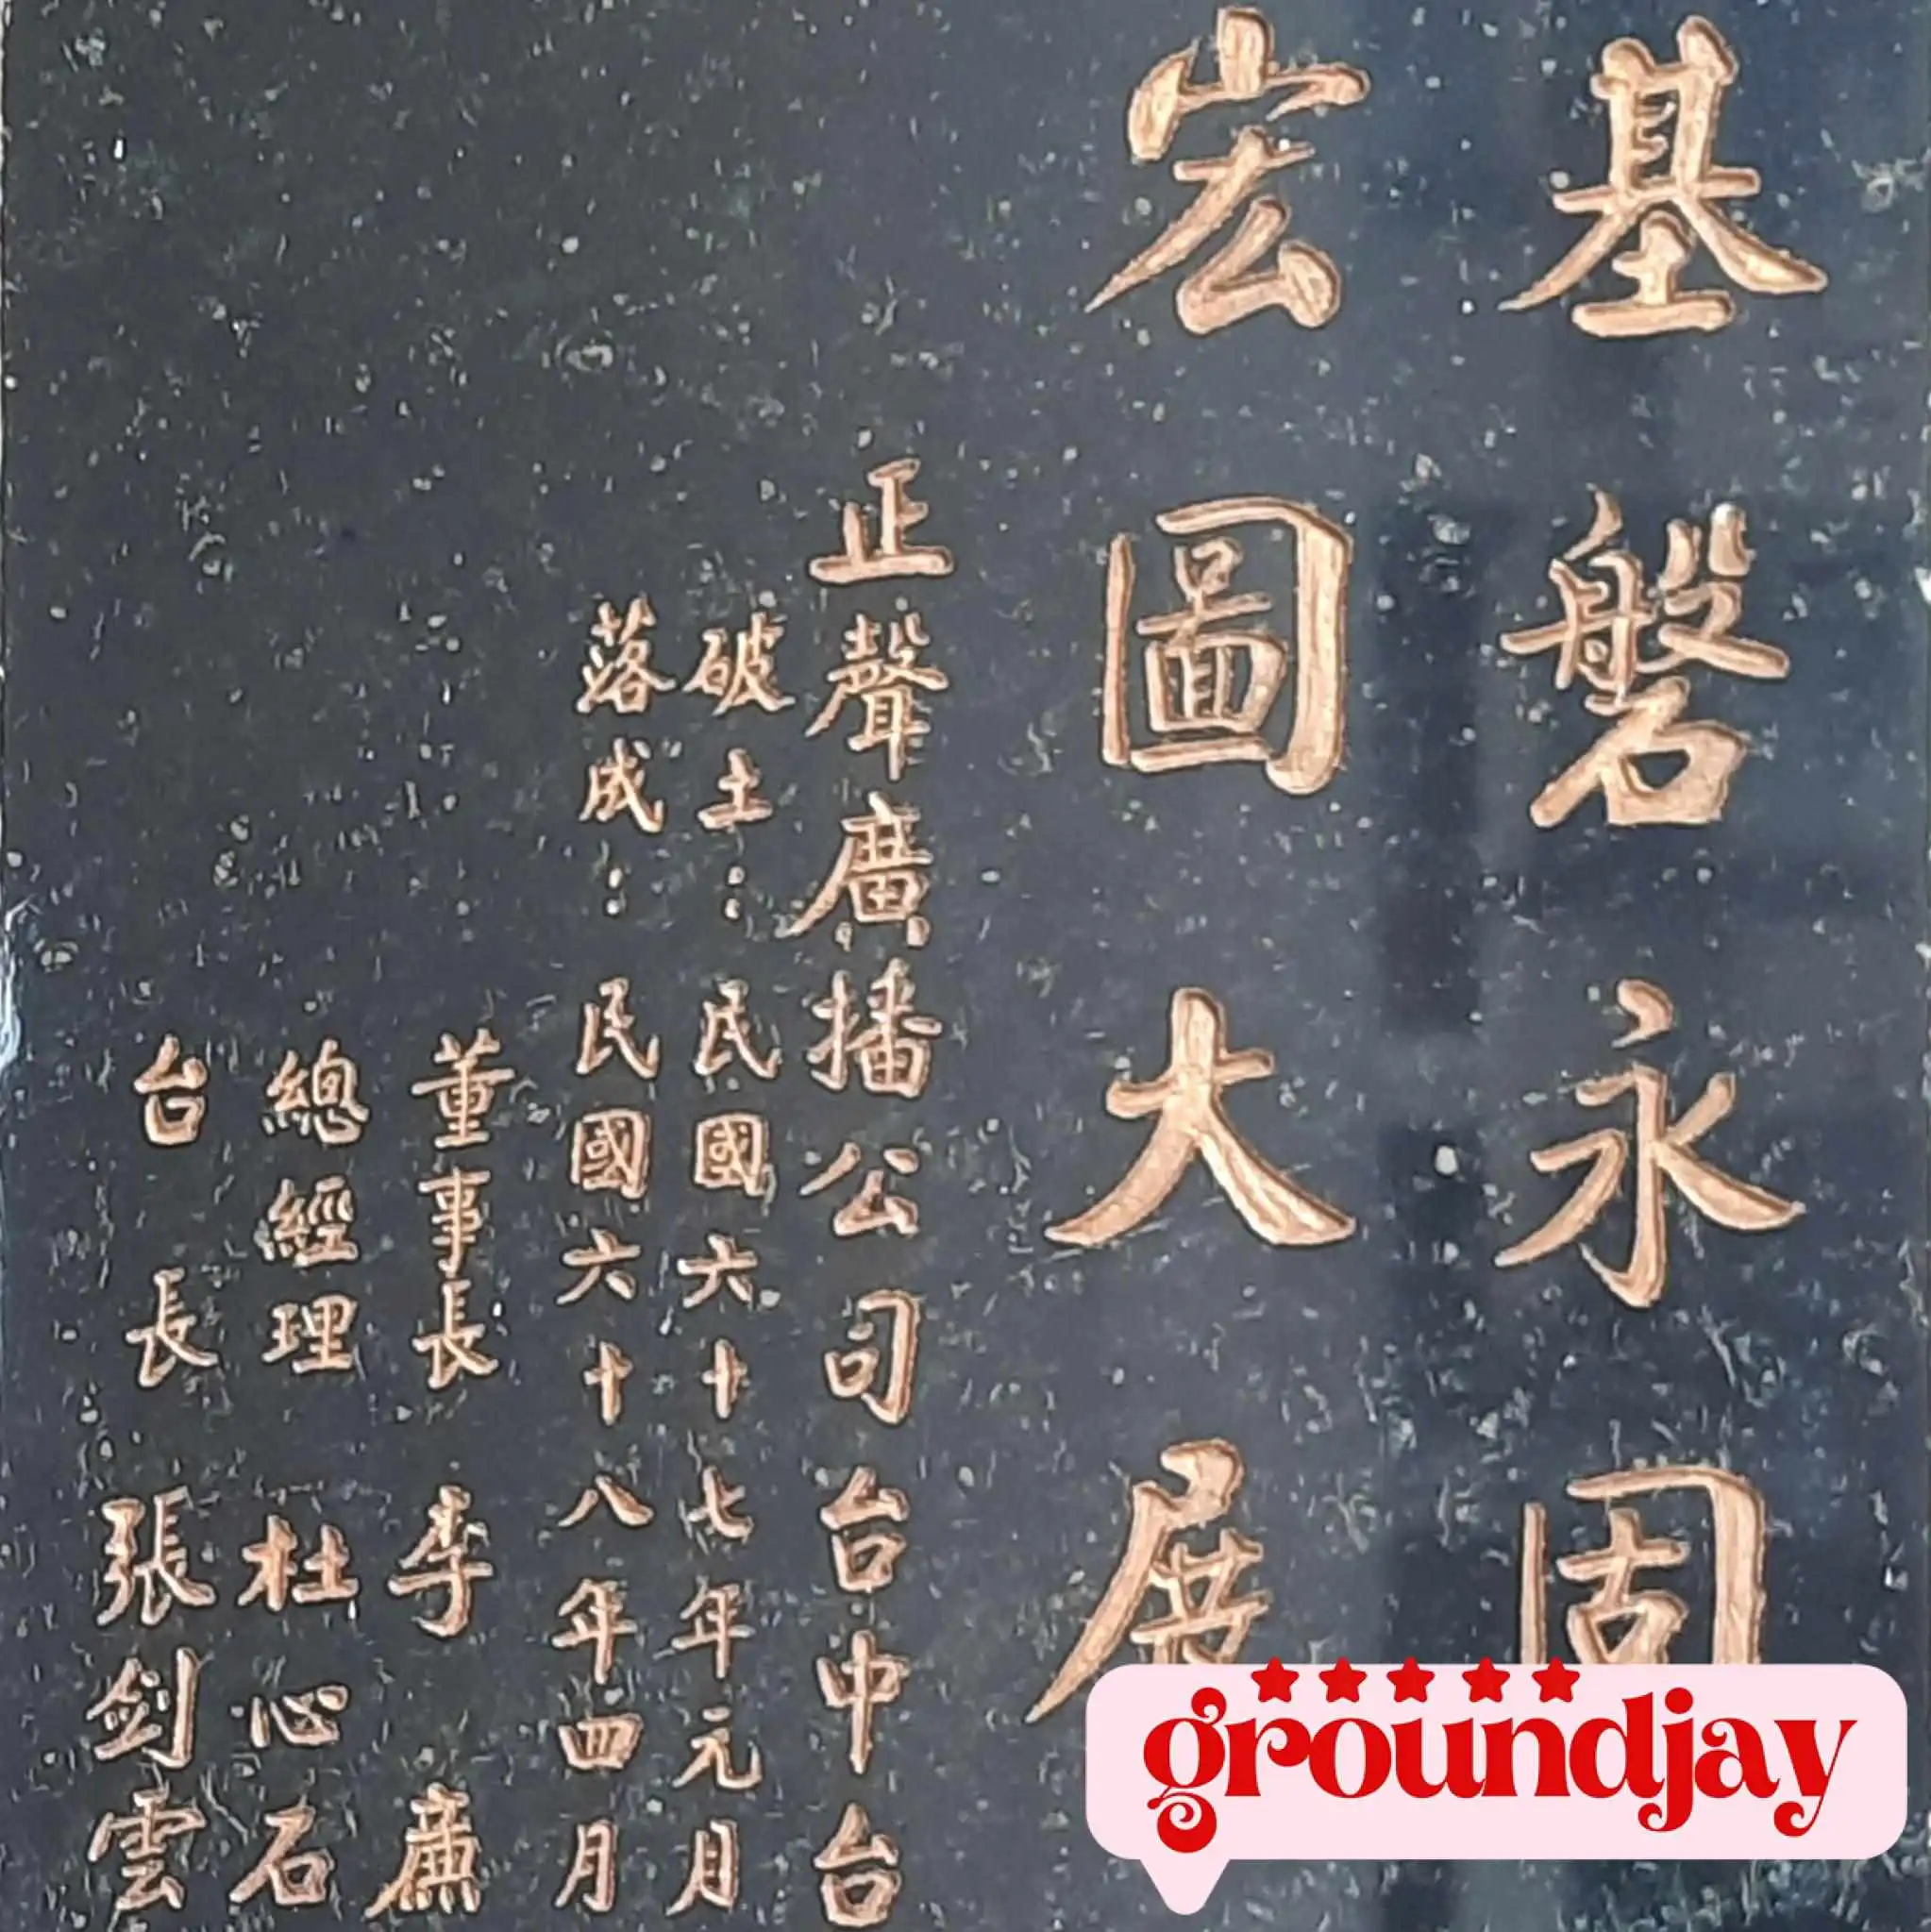 基磐永固
宏圖大展
正聲廣播公司台中台
破土：民國六十七年元月
落成：民國六十八年四月
董事長 李廉
總經理 杜心石
台長 張劍雲
groundjay